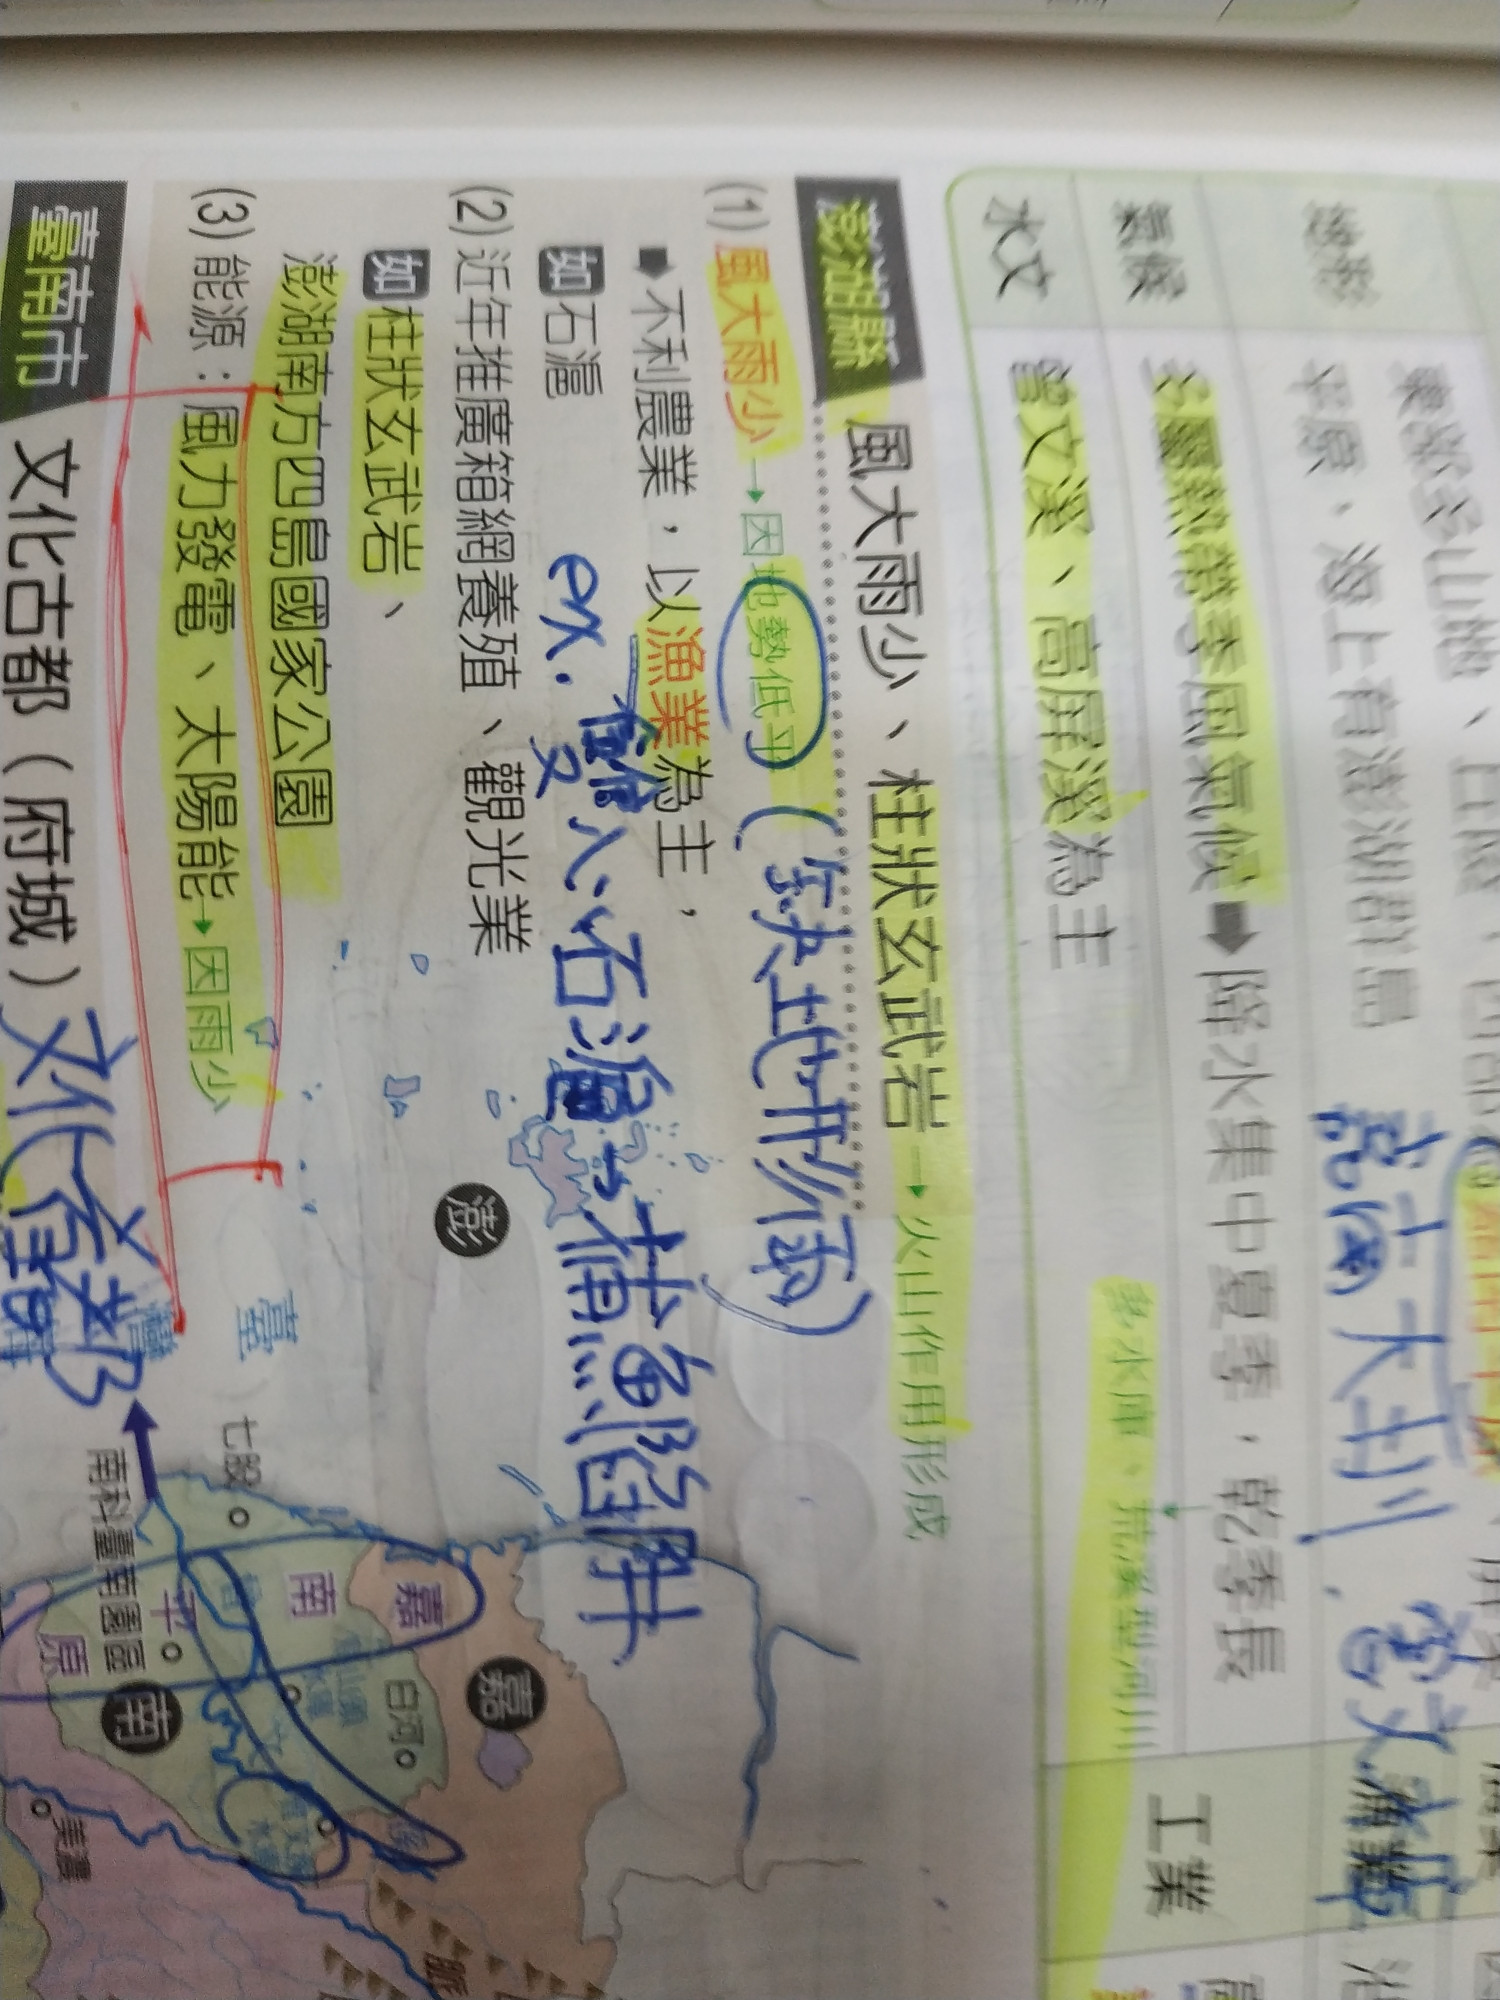 東部多山地、
平原，海上有澎湖群島
嘉南大圳
氣候
多屬熱帶季風氣候➡降水集中夏季，乾季長
水文
曾文溪、高屏溪為主
多水庫、荒溪型河川
工業
澎湖縣
風大雨少、柱狀玄武岩→火山作用形成
(1)風大雨少→因地勢低平(缺地形雨)
➡不利農業，以漁業為主，
如石滬
ex.雙心石滬→捕魚陷阱
(2)近年推廣箱網養殖、觀光業
如柱狀玄武岩、
澎湖南方四島國家公園
(3)能源：風力發電、太陽能→因雨少
臺南市
文化古都（府城）文化首都
澎
臺
灣
七股
南科臺南園區
嘉
南
平
原
嘉
白河
南
曾
文
溪
美濃
脈